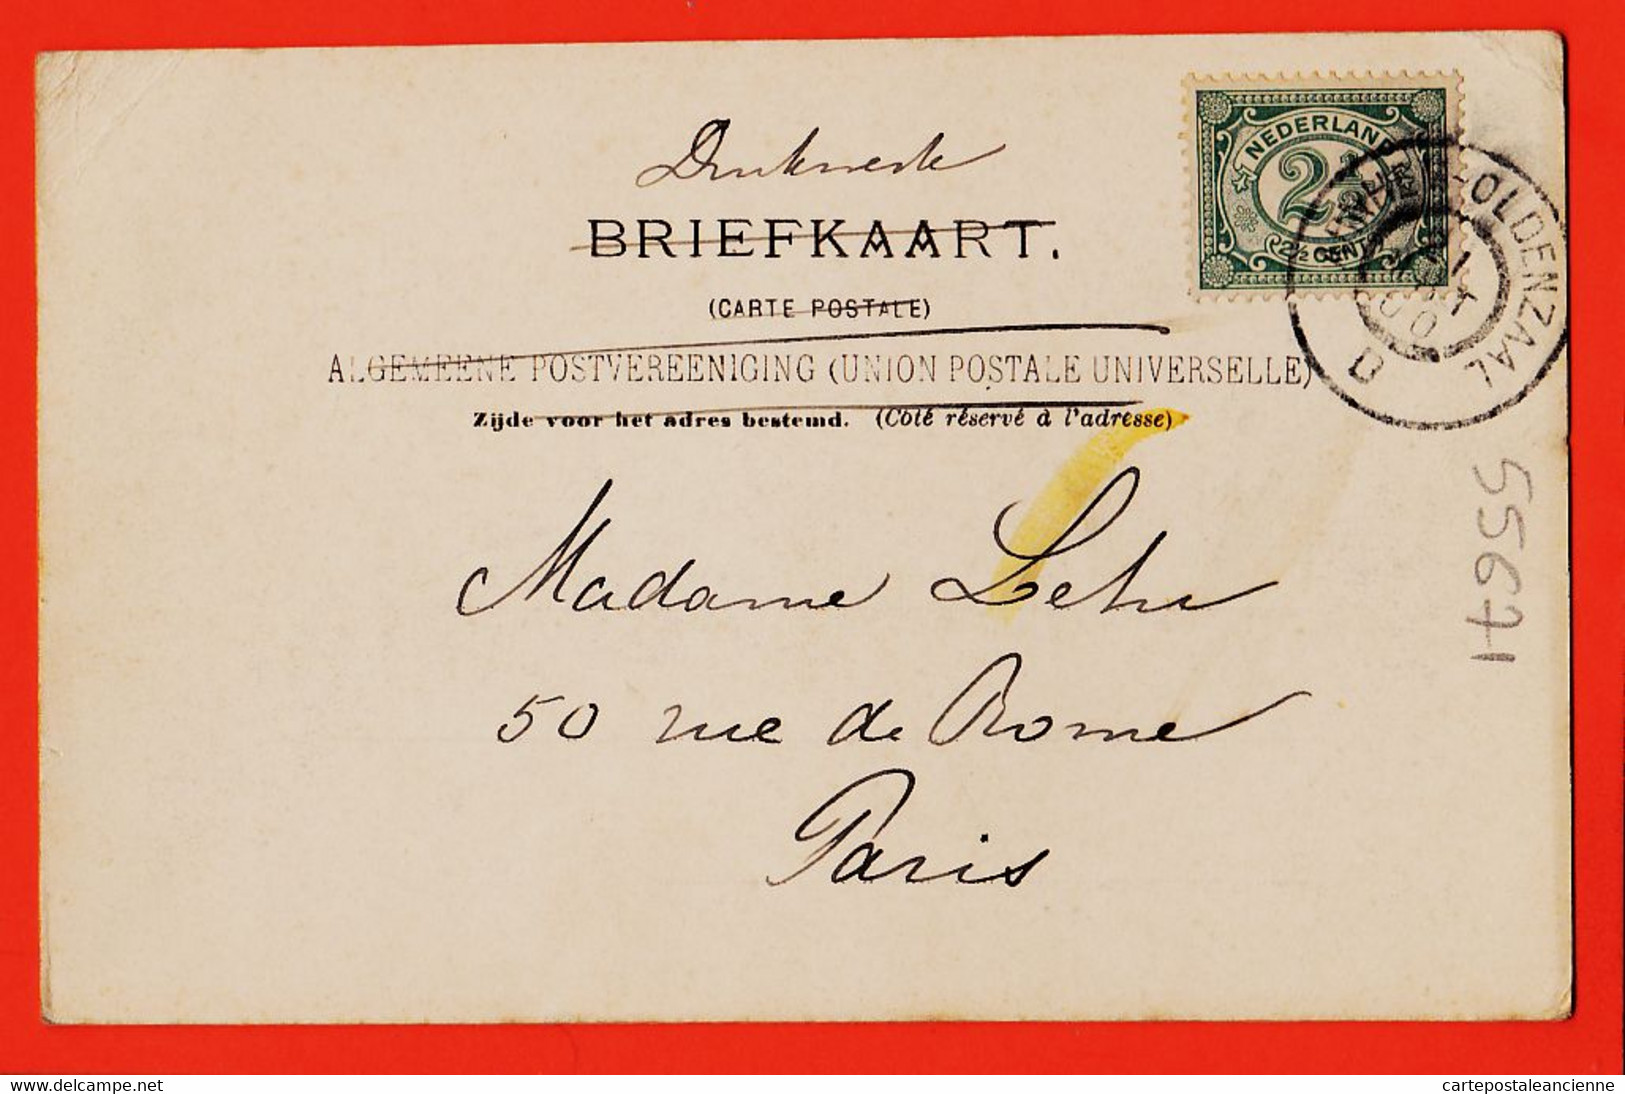 Drukwerk
BRIEFKAART.
(CARTE POSTALE)
ALGEMEENE POSTVEREENIGING (UNION POSTALE UNIVERSELLE)
Zijde voor het adres bestemd. (Côté réservé à l'adresse)
NEDERLAND
2½
2½ CENT
OLDENZAAL
D
55671
Madame Lehu
50 rue de Rome
Paris
delcampe.net
cartepostaleancienne